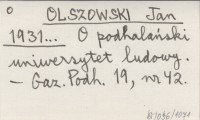 OLSZOWSKI Jan
1931... O podhalański
uniwersytet ludowy.
– Gaz. Podh. 19, nr 42.